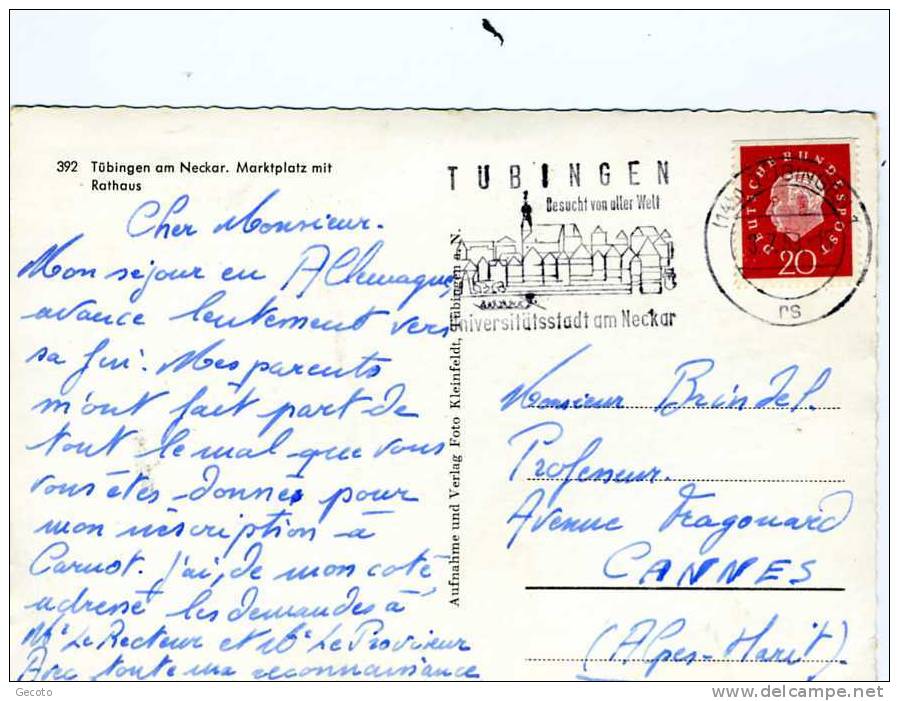 392 Tübingen am Neckar. Marktplatz mit
Rathaus
Cher Monsieur.
Mon séjour en Allemagne,
avance lentement vers
sa fin. Mes parents
m'ont fait part de
tout le mal que vous
vous êtes donnés pour
mon inscription à
Carnot. J'ai, de mon coté
adressé les demandes à
Mr Le Recteur et Mr Le Proviseur
Avec toute ma reconnaissance
Aufnahme und Verlag Foto Kleinfeldt, Tübingen a. N.
TÜBINGEN
Besucht von aller Welt
niversitätsstadt am Neckar
DEUTSCHE BUNDESPOST
20
rs
Monsieur Brindel.
Professeur.
Avenue Fragonard
CANNES
(Alpes-Marit).
Gecoto
www.delcampe.net